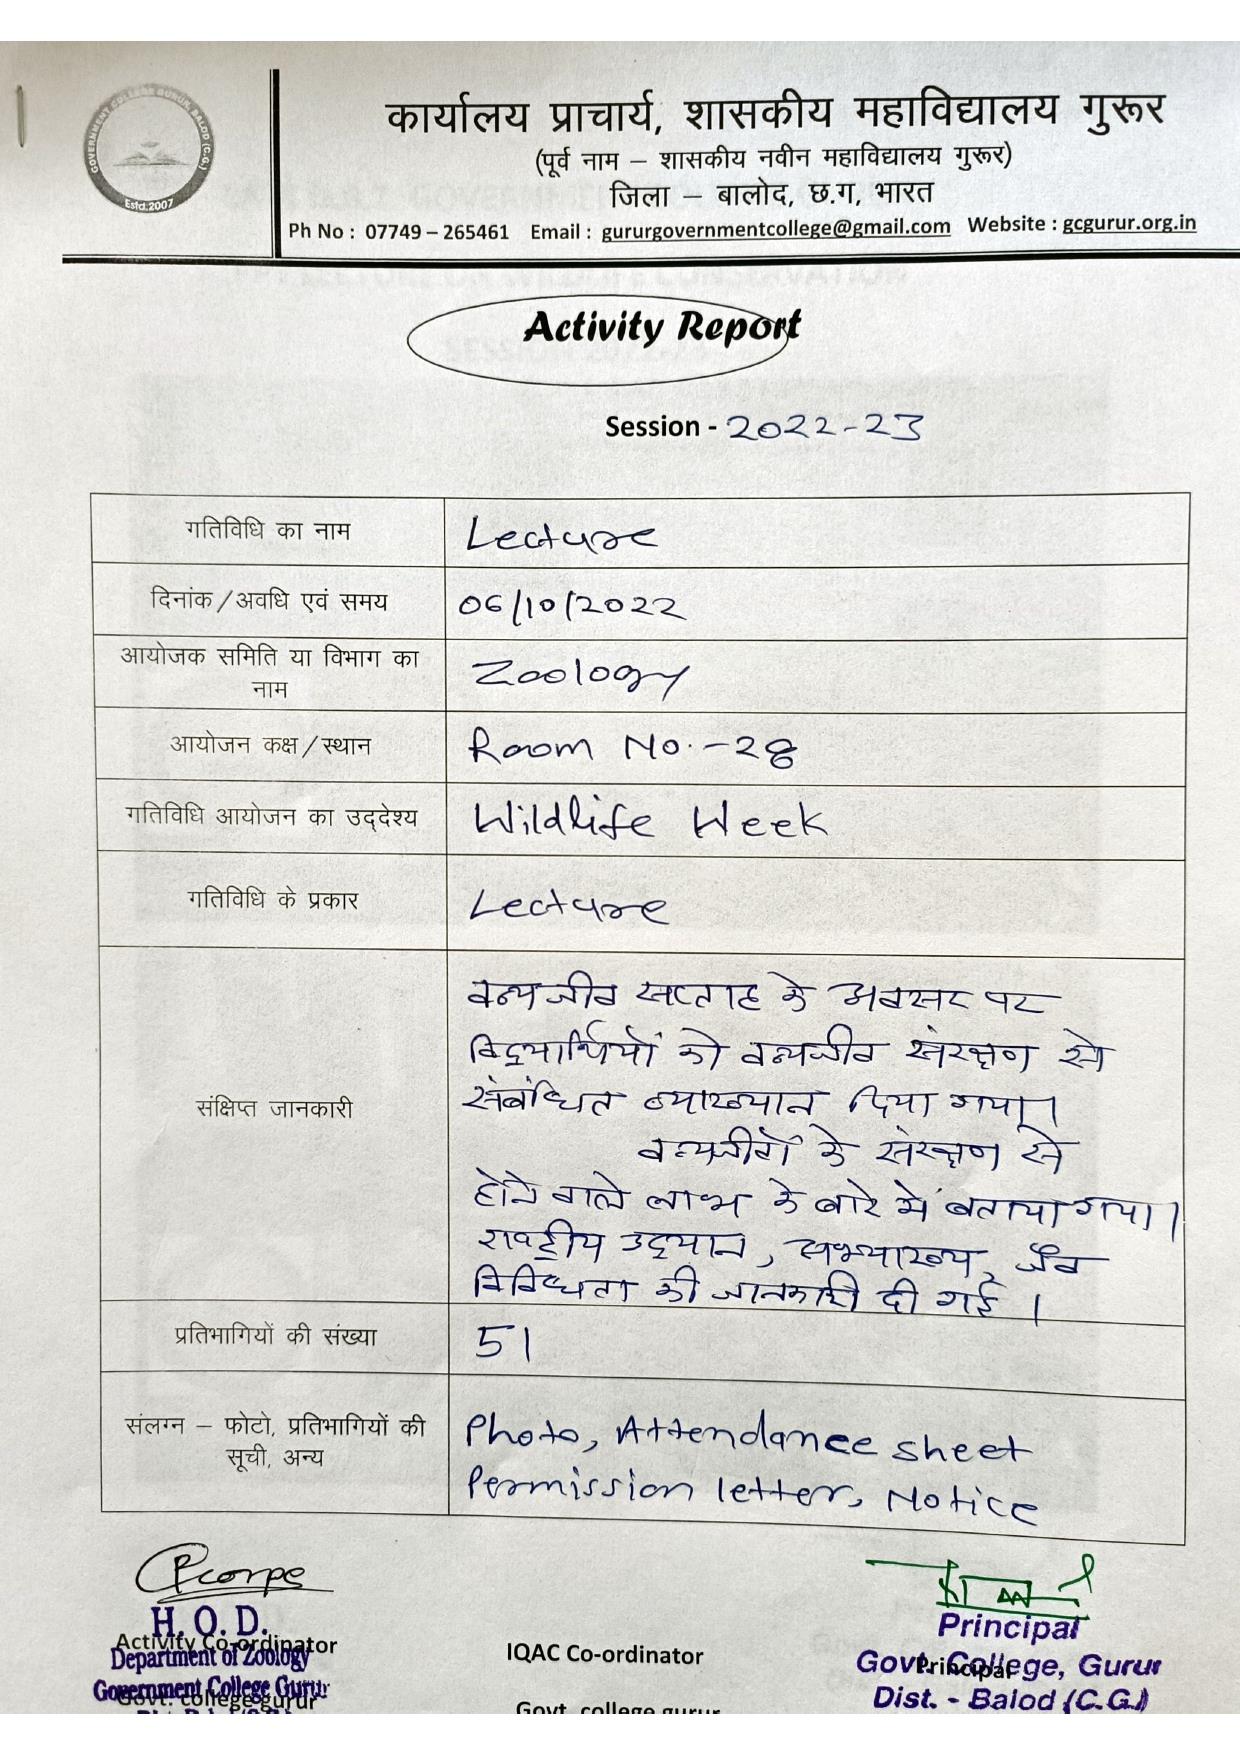 GOVERNMENT COLLEGE GURUR, BALOD (C.G.)
Estd.2007
कार्यालय प्राचार्य, शासकीय महाविद्यालय गुरूर
(पूर्व नाम – शासकीय नवीन महाविद्यालय गुरूर)
जिला – बालोद, छ.ग, भारत
Ph No : 07749 – 265461 Email : gururgovernmentcollege@gmail.com Website : gcgurur.org.in
Activity Report
Session - 2022-23
गतिविधि का नाम Lecture
दिनांक/अवधि एवं समय 06/10/2022
आयोजक समिति या विभाग का
नाम Zoology
आयोजन कक्ष/स्थान Room No.-28
गतिविधि आयोजन का उद्देश्य Wildlife Week
गतिविधि के प्रकार Lecture
संक्षिप्त जानकारी
वन्यजीव सप्ताह के अवसर पर
विद्यार्थियों को वन्यजीव संरक्षण से
संबंधित व्याख्यान दिया गया।
वन्यजीवों के संरक्षण से
होने वाले लाभ के बारे में बताया गया।
राष्ट्रीय उद्यान, अभ्यारण्य, जैव
विविधता की जानकारी दी गई ।
प्रतिभागियों की संख्या 51
संलग्न – फोटो, प्रतिभागियों की
सूची, अन्य
Photo, Attendance sheet
Permission letter, Notice
H. O. D.
Activity Co-ordinator
Department of Zoology
Government College Gurur
Govt. college gurur
IQAC Co-ordinator
Govt. college gurur
Principal
Principal
Govt. College, Gurur
Dist. - Balod (C.G.)